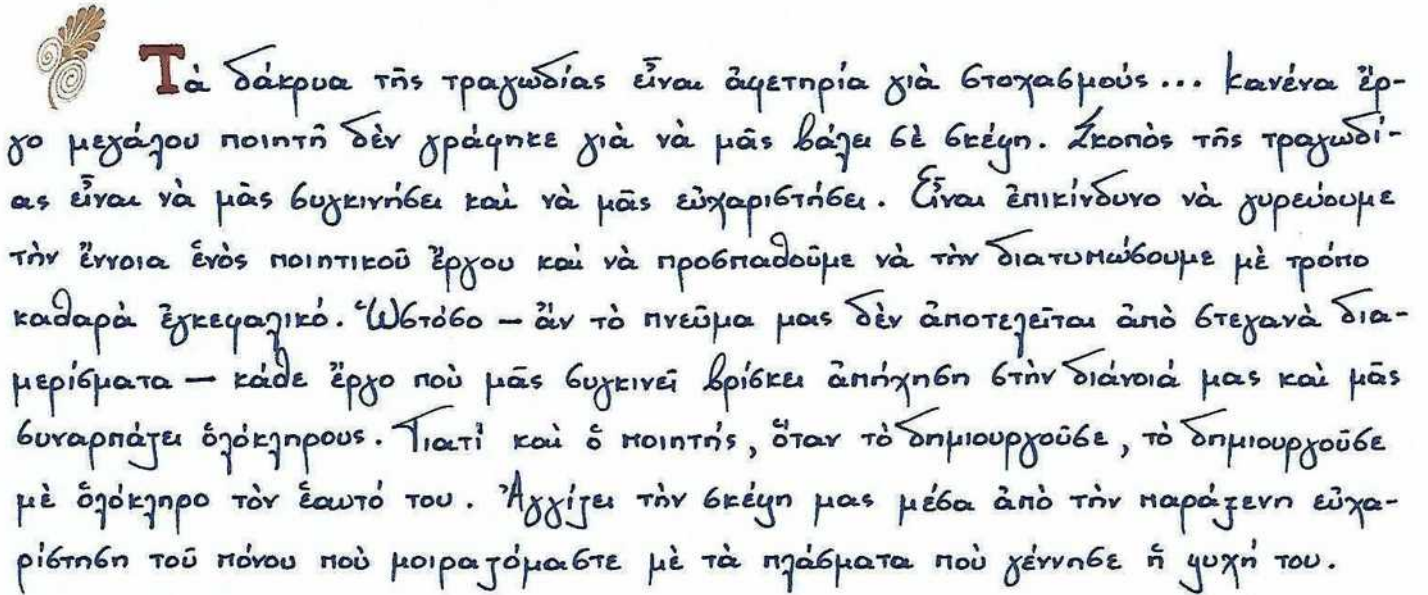 Τὰ δάκρυα τῆς τραγωδίας εἶναι ἀφετηρία γιὰ στοχασμούς... Κανένα ἔρ-
γο μεγάλου ποιητῆ δὲν γράφηκε γιὰ νὰ μᾶς βάλει σὲ σκέψη. Σκοπὸς τῆς τραγωδί-
ας εἶναι νὰ μᾶς συγκινήσει καὶ νὰ μᾶς εὐχαριστήσει. Εἶναι ἐπικίνδυνο νὰ γυρεύουμε
τὴν ἔννοια ἑνὸς ποιητικοῦ ἔργου καὶ νὰ προσπαθοῦμε νὰ τὴν διατυπώσουμε μὲ τρόπο
καθαρὰ ἐγκεφαλικό. Ὡστόσο – ἂν τὸ πνεῦμα μας δὲν ἀποτελεῖται ἀπὸ στεγανὰ δια-
μερίσματα – κάθε ἔργο ποὺ μᾶς συγκινεῖ βρίσκει ἀπήχηση στὴν διάνοιά μας καὶ μᾶς
συναρπάζει ὁλόκληρους. Γιατὶ καὶ ὁ ποιητής, ὅταν τὸ δημιουργοῦσε, τὸ δημιουργοῦσε
μὲ ὁλόκληρο τὸν ἑαυτό του. Ἀγγίζει τὴν σκέψη μας μέσα ἀπὸ τὴν παράξενη εὐχα-
ρίστηση τοῦ πόνου ποὺ μοιραζόμαστε μὲ τὰ πλάσματα ποὺ γέννησε ἡ ψυχή του.